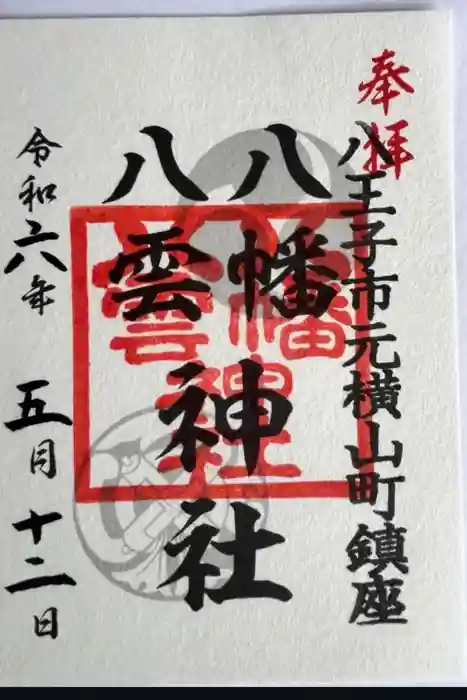 奉拝
八王子市元横山町鎮座
八幡
八雲
神社
令和六年 五月十二日